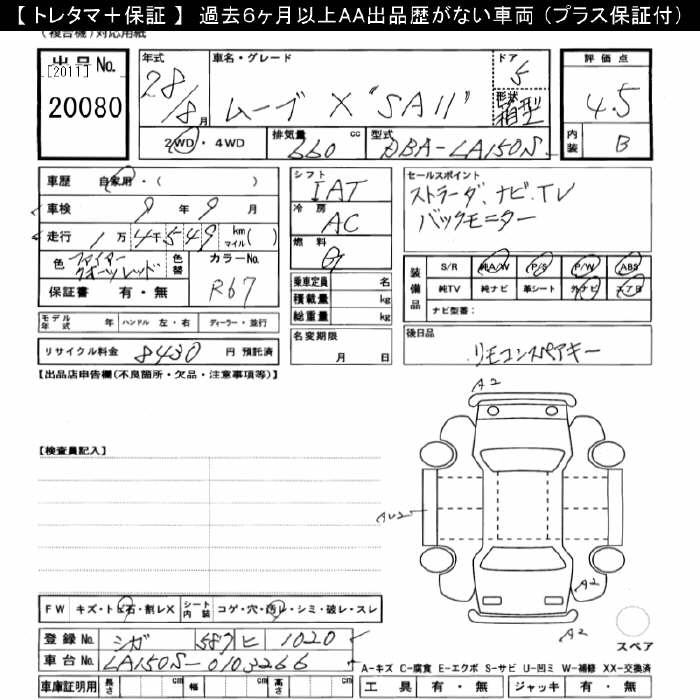 【 トレタマ＋保証 】 過去６ヶ月以上ＡＡ出品歴がない車両（プラス保証付）
（複合機）対応用紙
出品No. [2011] 20080
年式 28/8月
車名・グレード ムーブ X "SAII"
ドア 5
形状 箱型
評価点 4.5
内装 B
2WD・4WD
排気量 660 cc
型式 DBA-LA150S
車歴 自家用・（ ）
車検 9年9月
走行 1万4千549 km マイル( )
色 ファイヤークオーツレッド 色替
カラーNo. R67
保証書 有・無
シフト IAT
冷房 AC
燃料 G
乗車定員 名
積載量 kg
総重量 kg
セールスポイント
ストラーダ、ナビ、TV
バックモニター
装備品 S/R 純A/W P/S P/W ABS
純TV 純ナビ 革シート 外ナビ エアB
ナビ型番：
モデル年式 年 ハンドル 左・右 ディーラー・並行
名変期限 月 日
後日品 リモコンスペアキー
リサイクル料金 8430 円 預託済
【出品店申告欄(不良個所・欠品・注意事項等)】
A2
【検査員記入】
AU2
A2
A2
FW キズ・トビ石・割レX シート内装 コゲ・穴・汚レ・シミ・破レ・スレ
登録No. シガ 587 ヒ 1020
車台No. LA150S-0103266
スペア
A-キズ C-腐食 E-エクボ S-サビ U-凹ミ W-補修 XX-交換済
車庫証明用 長さ cm 幅 cm 高さ cm 工具 有・無 ジャッキ 有・無